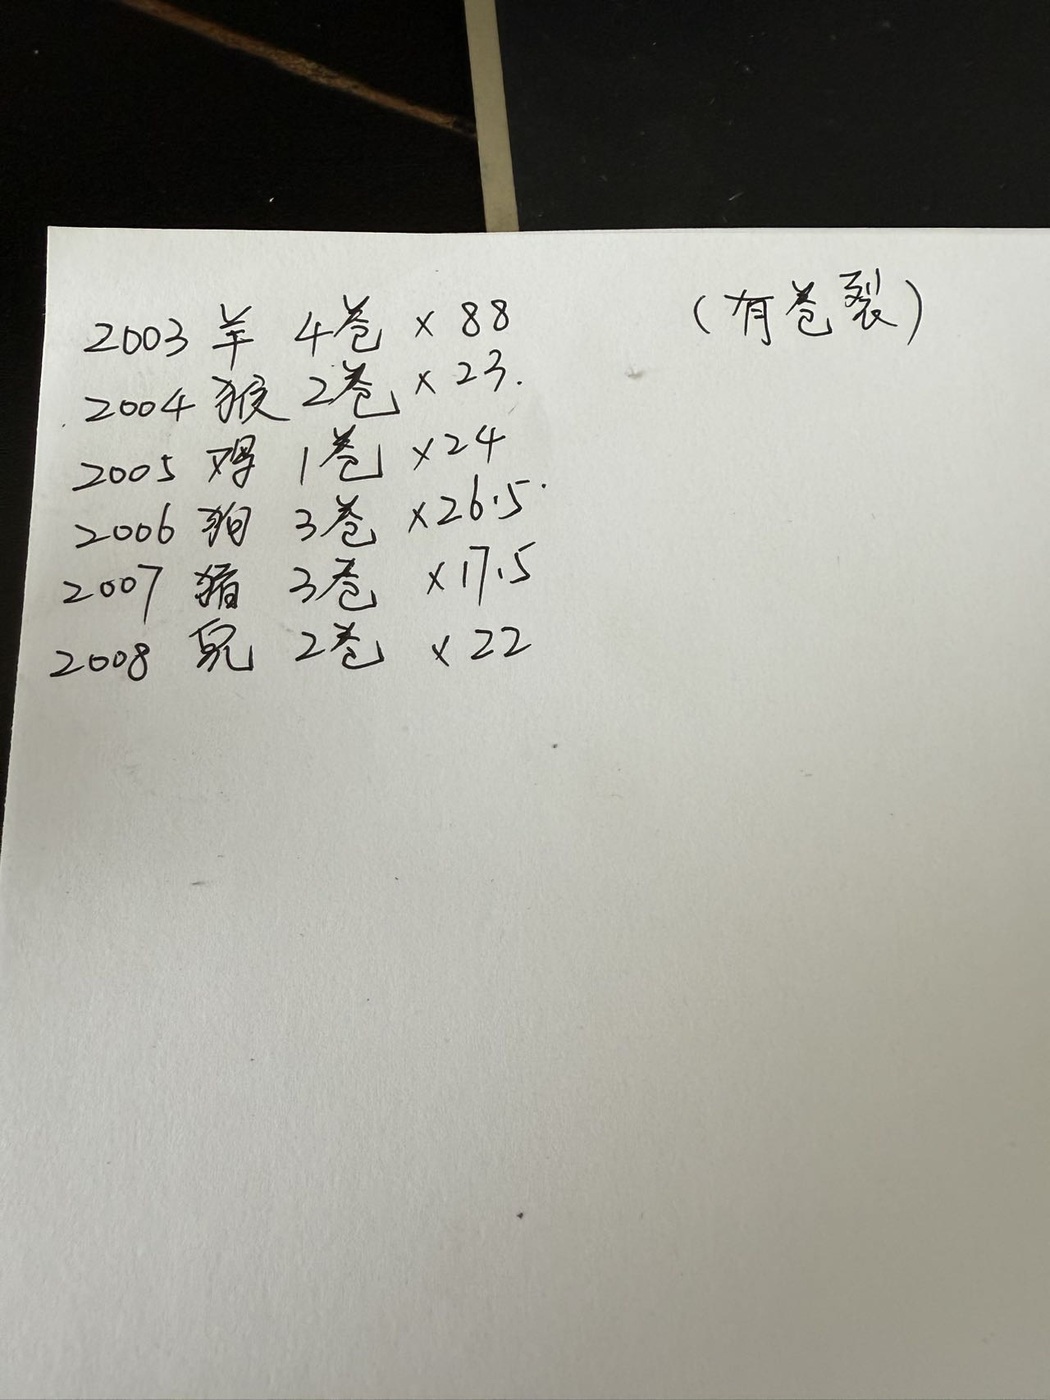 2003 羊 4卷 × 88 (有卷裂)
2004 猴 2卷 × 23.
2005 鸡 1卷 ×24
2006 狗 3卷 ×26.5
2007 猪 3卷 ×17.5
2008 鼠 2卷 × 22